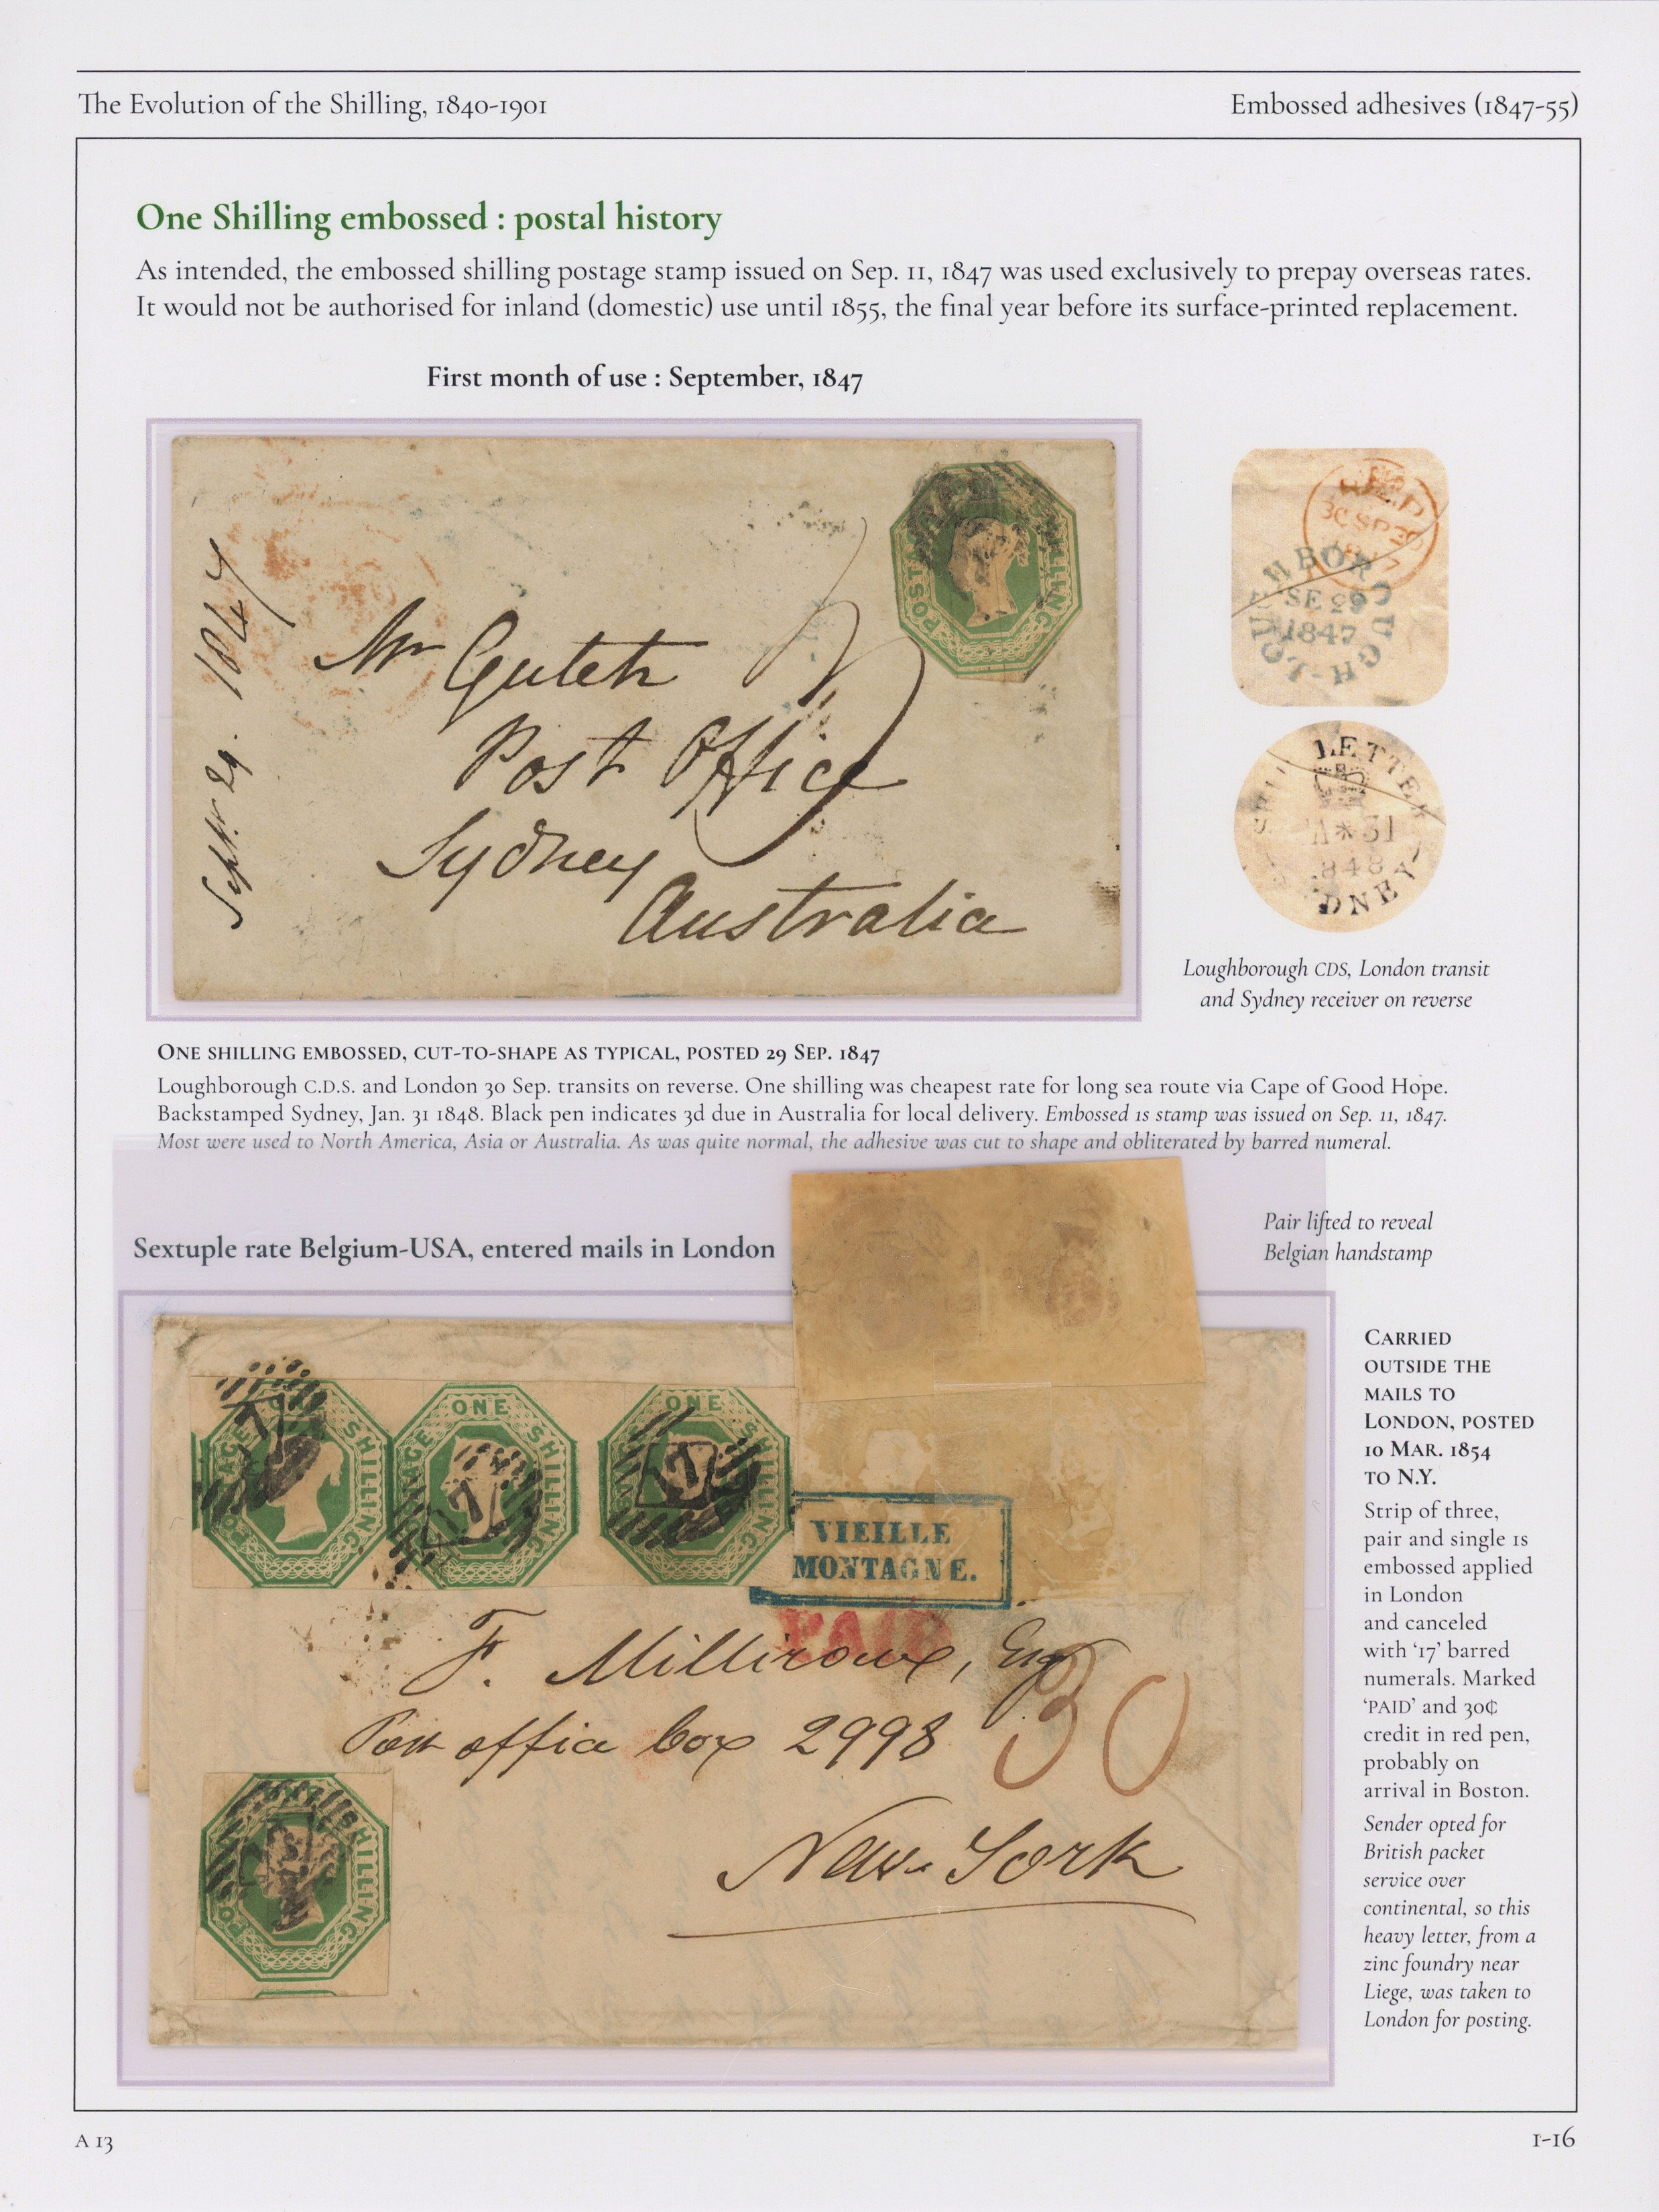 The Evolution of the Shilling, 1840-1901
Embossed adhesives (1847-55)
One Shilling embossed : postal history
As intended, the embossed shilling postage stamp issued on Sep. 11, 1847 was used exclusively to prepay overseas rates.
It would not be authorised for inland (domestic) use until 1855, the final year before its surface-printed replacement.
First month of use : September, 1847
Septr 29. 1847
POSTAGE SHILLING
Mr Gutch
Post Office
Sydney
Australia
30 SP 30
LOUGHBOROUGH
SE 29
1847
LETTER
A*31
848
DNEY
Loughborough CDS, London transit
and Sydney receiver on reverse
ONE SHILLING EMBOSSED, CUT-TO-SHAPE AS TYPICAL, POSTED 29 SEP. 1847
Loughborough C.D.S. and London 30 Sep. transits on reverse. One shilling was cheapest rate for long sea route via Cape of Good Hope.
Backstamped Sydney, Jan. 31 1848. Black pen indicates 3d due in Australia for local delivery. Embossed 1s stamp was issued on Sep. 11, 1847.
Most were used to North America, Asia or Australia. As was quite normal, the adhesive was cut to shape and obliterated by barred numeral.
Sextuple rate Belgium-USA, entered mails in London
Pair lifted to reveal
Belgian handstamp
POSTAGE ONE SHILLING
POSTAGE ONE SHILLING
POSTAGE ONE SHILLING
17
17
17
VIEILLE
MONTAGNE.
PAID
F. Millirowe, Esq
Post office box 2998
30
New-York
POSTAGE ONE SHILLING
CARRIED
OUTSIDE THE
MAILS TO
LONDON, POSTED
10 MAR. 1854
TO N.Y.
Strip of three,
pair and single 1s
embossed applied
in London
and canceled
with ‘17’ barred
numerals. Marked
‘PAID’ and 30¢
credit in red pen,
probably on
arrival in Boston.
Sender opted for
British packet
service over
continental, so this
heavy letter, from a
zinc foundry near
Liege, was taken to
London for posting.
A 13
1-16